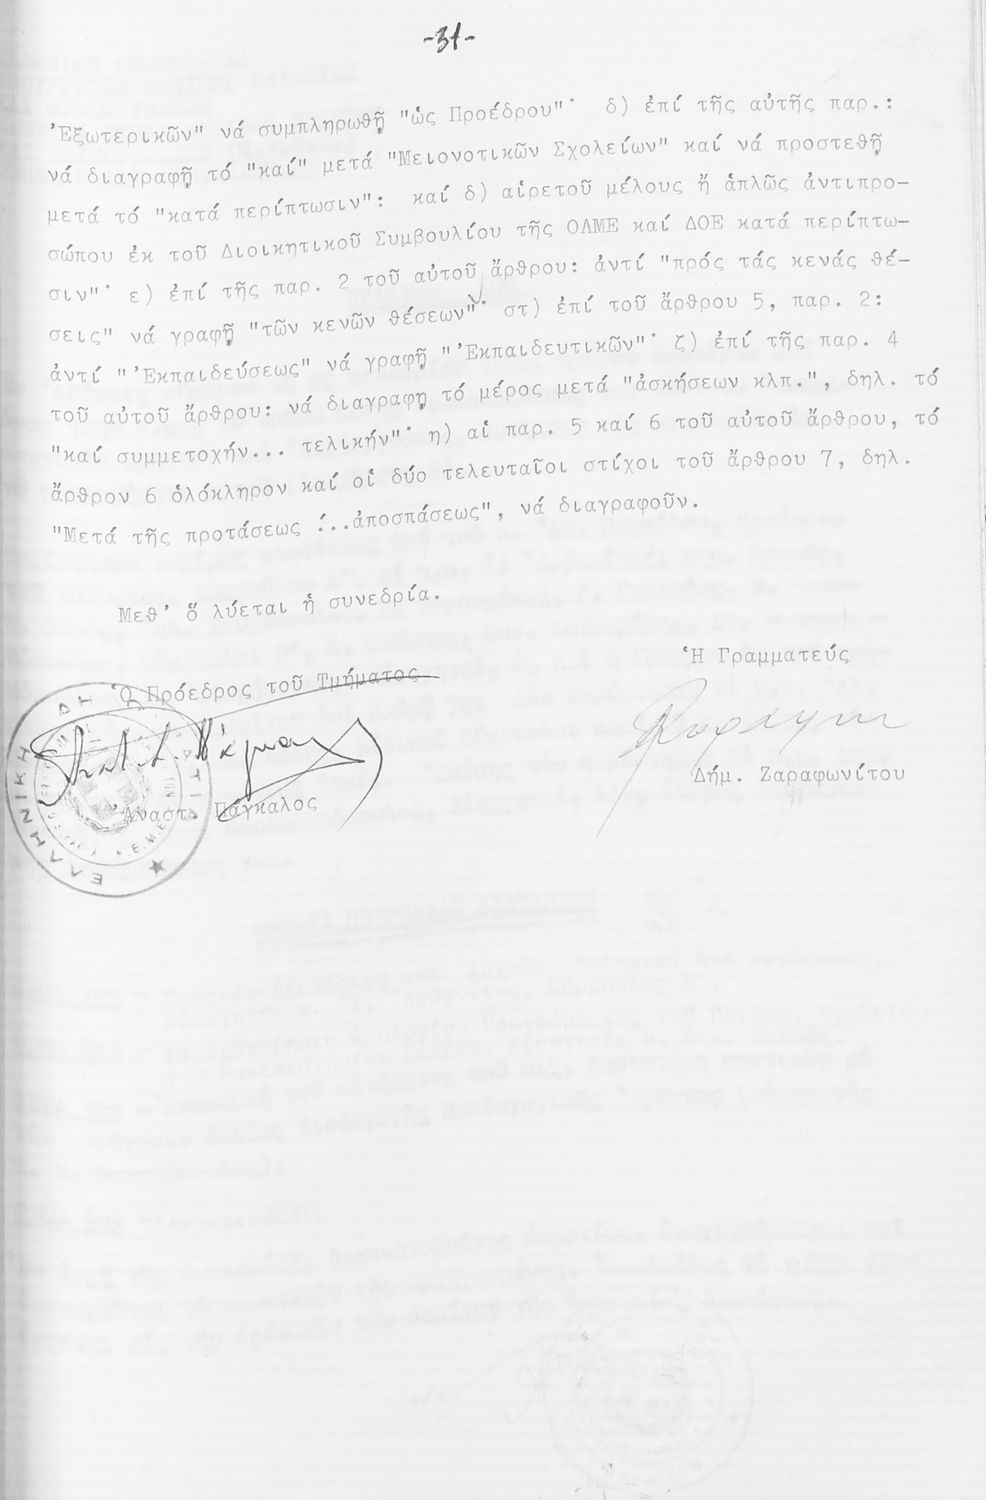 -31-
Ἐξωτερικῶν" νά συμπληρωθῇ "ὡς Προέδρου"· δ) ἐπί τῆς αὐτῆς παρ.:
νά διαγραφῇ τό "καί" μετά "Μειονοτικῶν Σχολείων" καί νά προστεθῇ
μετά τό "κατά περίπτωσιν": καί δ) αἱρετοῦ μέλους ἤ ἁπλῶς ἀντιπρο-
σώπου ἐκ τοῦ Διοικητικοῦ Συμβουλίου τῆς ΟΛΜΕ καί ΔΟΕ κατά περίπτω-
σιν"· ε) ἐπί τῆς παρ. 2 τοῦ αὐτοῦ ἄρθρου: ἀντί "πρός τάς κενάς θέ-
σεις" νά γραφῇ "τῶν κενῶν θέσεων"· στ) ἐπί τοῦ ἄρθρου 5, παρ. 2:
ἀντί "Ἐκπαιδεύσεως" νά γραφῇ "Ἐκπαιδευτικῶν"· ζ) ἐπί τῆς παρ. 4
τοῦ αὐτοῦ ἄρθρου: νά διαγραφῃ τό μέρος μετά "ἀσκήσεων κλπ.", δηλ. τό
"καί συμμετοχήν... τελικήν"· η) αἱ παρ. 5 καί 6 τοῦ αὐτοῦ ἄρθρου, τό
ἄρθρον 6 ὁλόκληρον καί οἱ δύο τελευταῖοι στίχοι τοῦ ἄρθρου 7, δηλ.
"Μετά τῆς προτάσεως ...ἀποσπάσεως", νά διαγραφοῦν.
Μεθ' ὅ λύεται ἡ συνεδρία.
Ἡ Γραμματεύς
Ὁ Πρόεδρος τοῦ Τμήματος
Δήμ. Ζαραφωνίτου
Ἀναστ. Πάγκαλος
ΕΛΛΗΝΙΚΗ ΔΗ ΑΤΙΑ